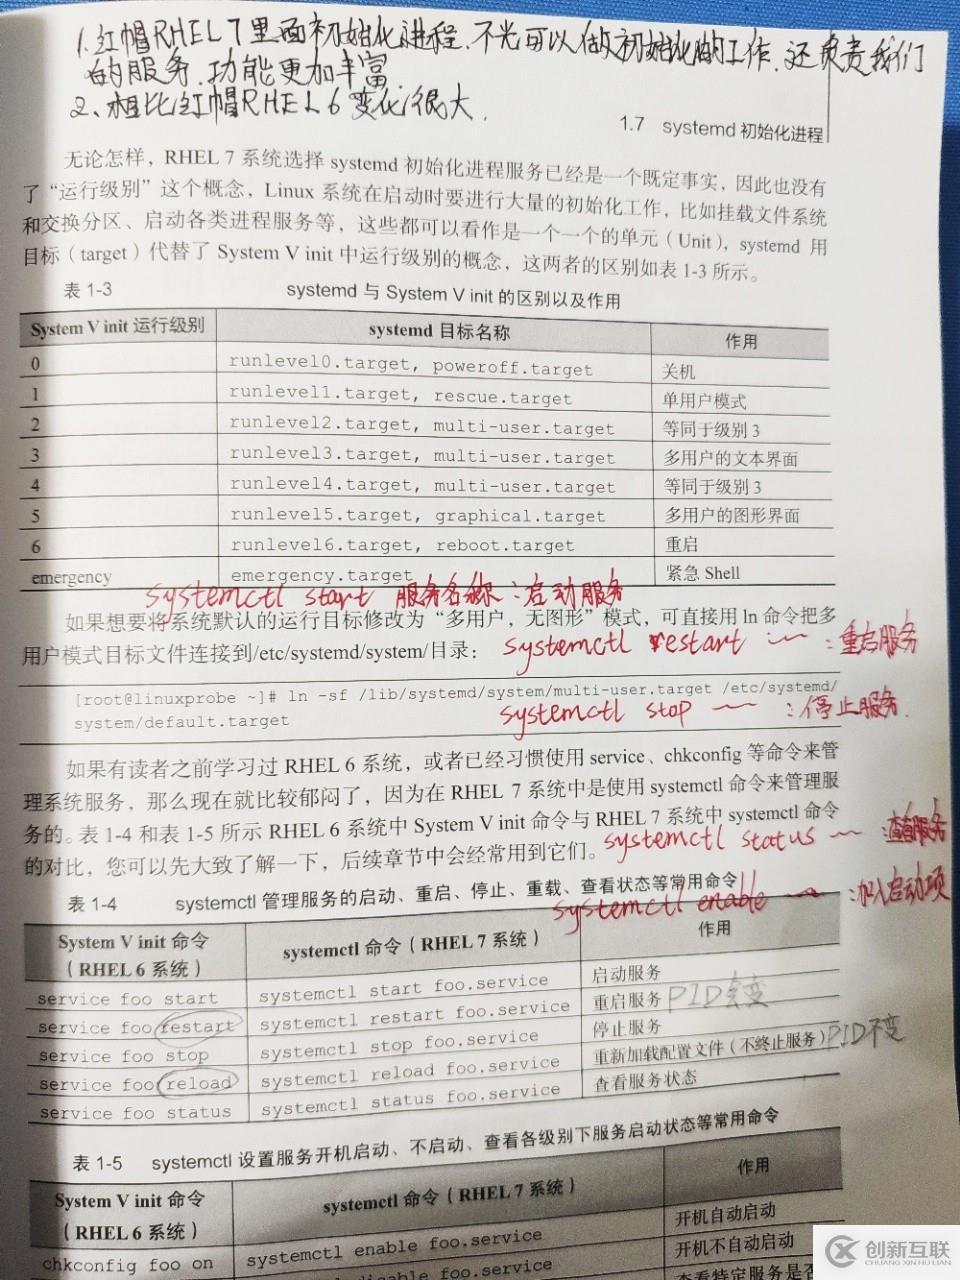 1.红帽RHEL7里面初始化进程.不光可以做初始化的工作.还负责我们
的服务.功能更加丰富
2、相比红帽RHEL6变化很大.
1.7 systemd 初始化进程
无论怎样，RHEL 7 系统选择 systemd 初始化进程服务已经是一个既定事实，因此也没有
了“运行级别”这个概念，Linux 系统在启动时要进行大量的初始化工作，比如挂载文件系统
和交换分区、启动各类进程服务等，这些都可以看作是一个一个的单元（Unit），systemd 用
目标（target）代替了 System V init 中运行级别的概念，这两者的区别如表 1-3 所示。
表 1-3 systemd 与 System V init 的区别以及作用
System V init 运行级别 systemd 目标名称 作用
0 runlevel0.target, poweroff.target 关机
1 runlevel1.target, rescue.target 单用户模式
2 runlevel2.target, multi-user.target 等同于级别 3
3 runlevel3.target, multi-user.target 多用户的文本界面
4 runlevel4.target, multi-user.target 等同于级别 3
5 runlevel5.target, graphical.target 多用户的图形界面
6 runlevel6.target, reboot.target 重启
emergency emergency.target 紧急 Shell
systemctl start 服务名称：启动服务
如果想要将系统默认的运行目标修改为“多用户，无图形”模式，可直接用 ln 命令把多
用户模式目标文件连接到/etc/systemd/system/目录：
systemctl restart ：重启服务
[root@linuxprobe ~]# ln -sf /lib/systemd/system/multi-user.target /etc/systemd/
system/default.target
systemctl stop ：停止服务.
如果有读者之前学习过 RHEL 6 系统，或者已经习惯使用 service、chkconfig 等命令来管
理系统服务，那么现在就比较郁闷了，因为在 RHEL 7 系统中是使用 systemctl 命令来管理服
务的。表 1-4 和表 1-5 所示 RHEL 6 系统中 System V init 命令与 RHEL 7 系统中 systemctl 命令
的对比，您可以先大致了解一下，后续章节中会经常用到它们。
systemctl status ：查看服务
表 1-4 systemctl 管理服务的启动、重启、停止、重载、查看状态等常用命令
systemctl enable ：加入启动项
System V init 命令 systemctl 命令（RHEL 7 系统） 作用
（RHEL 6 系统）
service foo start systemctl start foo.service 启动服务
service foo restart systemctl restart foo.service 重启服务 PID会变
service foo stop systemctl stop foo.service 停止服务
service foo reload systemctl reload foo.service 重新加载配置文件（不终止服务） PID不变
service foo status systemctl status foo.service 查看服务状态
表 1-5 systemctl 设置服务开机启动、不启动、查看各级别下服务启动状态等常用命令
System V init 命令 systemctl 命令（RHEL 7 系统） 作用
（RHEL 6 系统）
chkconfig foo on systemctl enable foo.service 开机自动启动
disable foo.service 开机不自动启动
查看特定服务是否
创新互联
CHUANG XIN HU LIAN